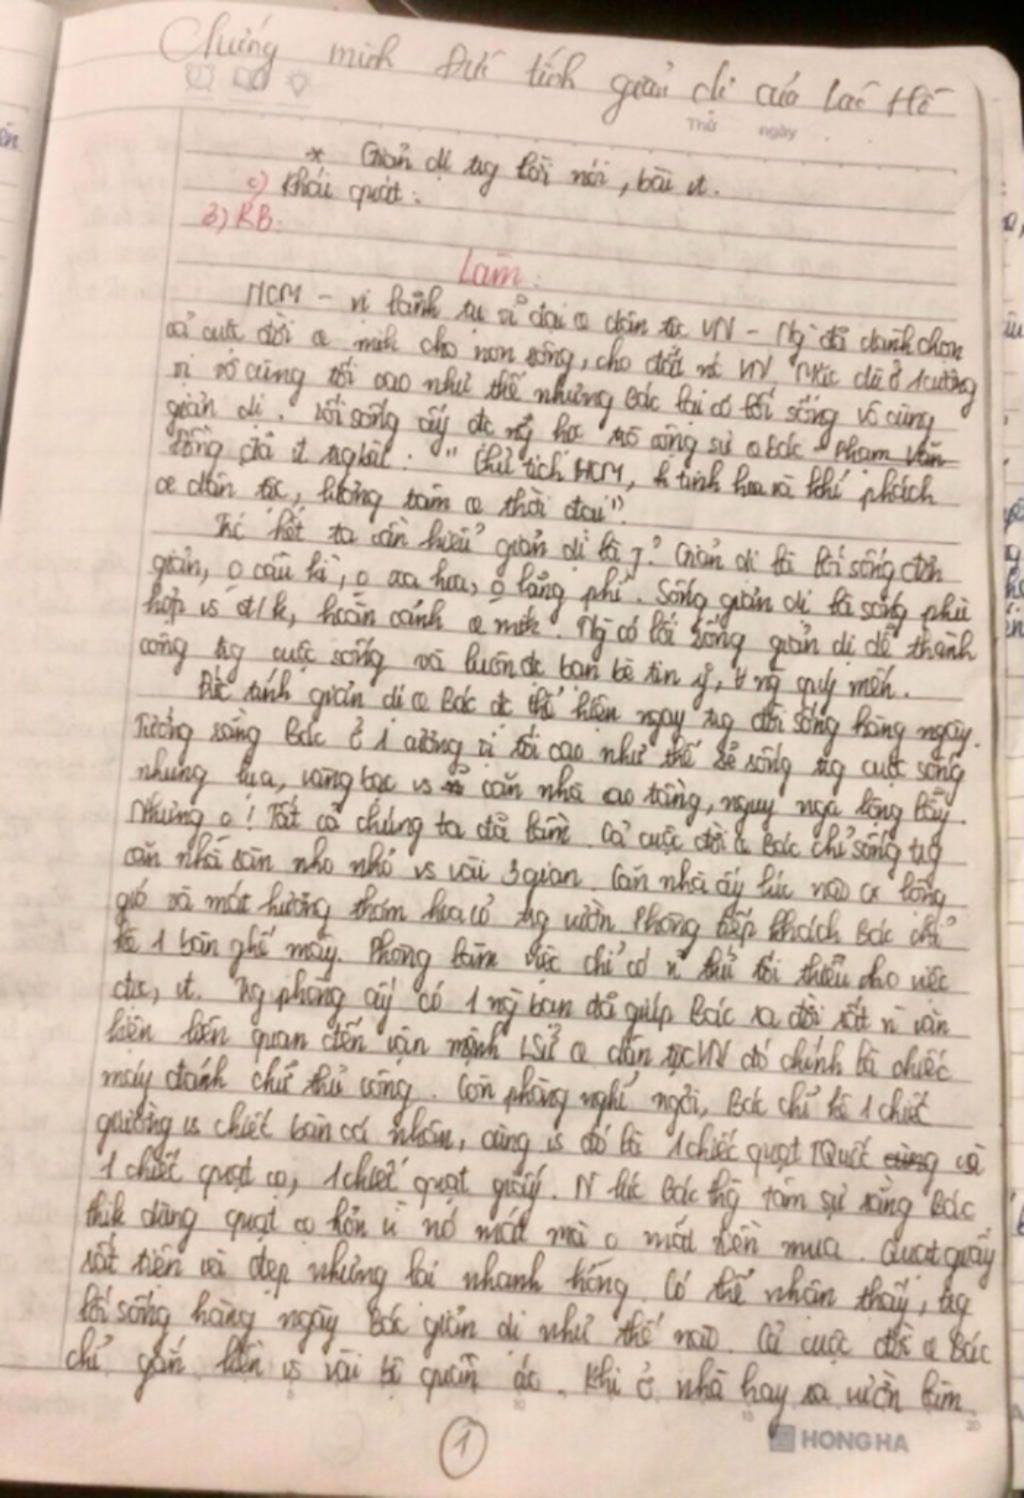 Chứng minh Đức tính giản dị của Bác Hồ
Thứ ngày
* Giản dị tr̀g lời nói, bài vt.
c) Khái quát:
3) KB.
Làm:
HCM - vị lãnh tụ vĩ đại of dân tộc VN - Ng̀ đã dành chọn
cả cuộc đời of mình cho non sông, cho đất nc VN. Mặc dù ở 1 cương
vị vô cùng tối cao như thế nhưng Bác lại có lối sống vô cùng
giản dị. Lối sống ấy đc ng̀ học trò cộng sự of Bác - Phạm Văn
Đồng đã vt tr̀g bài: "Chủ tịch HCM, tinh hoa và khí phách
of dân tộc, lương tâm of thời đại".
Trc hết ta cần hiểu giản dị là j? Giản dị là lối sống đơn
giản, o cầu kì, o xa hoa, o lãng phí. Sống giản dị là sống phù
hợp vs đ/k, hoàn cảnh of mình. Ng̀ có lối sống giản dị dễ thành
công tr̀g cuộc sống và luôn đc bạn bè tin ý, ∀ ng̀ quý mến.
Đức tính giản dị of Bác đc thể hiện ngay tr̀g đời sống hàng ngày.
Tưởng rằng Bác ở 1 cương vị tối cao như thế sẽ sống tr̀g cuộc sống
nhung lụa, vàng bạc vs căn nhà cao tầng, nguy nga lộng lẫy.
Nhưng o! Tất cả chúng ta đã lầm. Cả cuộc đời of Bác chỉ sống tr̀g
căn nhà sàn nho nhỏ vs vài 3 gian. Căn nhà ấy lúc nào cx lộng
gió và mát hương thơm hoa cỏ tr̀g vườn. Phòng tiếp khách Bác chỉ
kê 1 bàn ghế mây. Phòng làm việc chỉ có n̄ thứ tối thiểu cho việc
đọc, vt. Tr̀g phòng ấy có 1 ng̀ bạn đã giúp Bác ra đời rất n̄ văn
kiện liên quan đến vận mệnh LSử of dân tộc VN đó chính là chiếc
máy đánh chữ thủ công. Còn phòng nghỉ ngơi, Bác chỉ kê 1 chiếc
giường vs chiếc bàn cá nhân, cùng vs đó là 1 chiếc quạt TQuốc và
1 chiếc quạt cọ, 1 chiếc quạt giấy. N̄ lúc Bác thg̀ tâm sự rằng Bác
thik dùng quạt cọ hơn vì nó mát mà o mất tiền mua. Quạt giấy
rất tiện và đẹp nhưng lại nhanh hỏng. Có thể nhận thấy, tr̀g
lối sống hàng ngày Bác giản dị như thế nào. Cả cuộc đời of Bác
chỉ gắn liền vs vài bộ quần áo. Khi ở nhà hay ra vườn làm
1
HONG HA